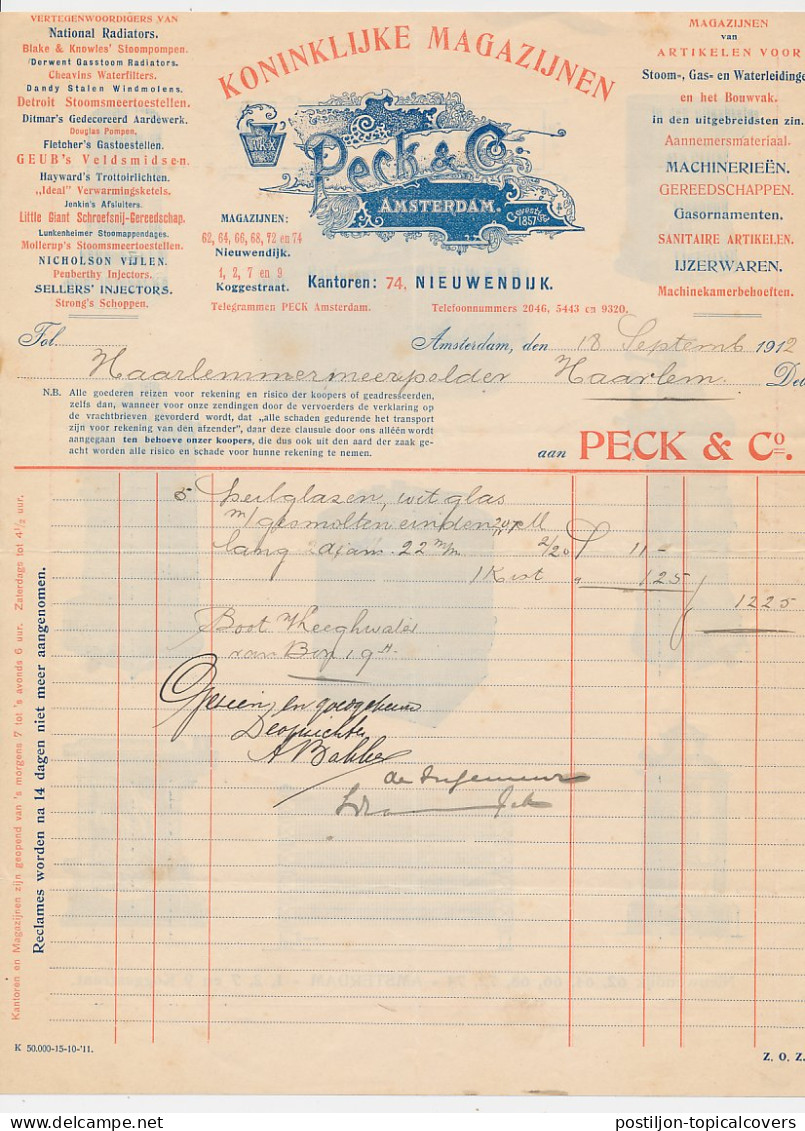 VERTEGENWOORDIGERS VAN
National Radiators.
Blake & Knowles' Stoompompen.
Derwent Gasstoom Radiators.
Cheavins Waterfilters.
Dandy Stalen Windmolens.
Detroit Stoomsmeertoestellen.
Ditmar's Gedecoreerd Aardewerk.
Douglas Pompen.
Fletcher's Gastoestellen.
GEUB's Veldsmidsen.
Hayward's Trottoirlichten.
„Ideal" Verwarmingsketels.
Jenkin's Afsluiters.
Little Giant Schroefsnij-Gereedschap.
Lunkenheimer Stoomappendages.
Mollerup's Stoomsmeertoestellen.
NICHOLSON VIJLEN.
Penberthy Injectors.
SELLERS' INJECTORS.
Strong's Schoppen.
KONINKLIJKE MAGAZIJNEN
Peck & Co.
AMSTERDAM.
Gevestigd 1857
MAGAZIJNEN:
62, 64, 66, 68, 72 en 74
Nieuwendijk.
1, 2, 7 en 9
Koggestraat.
Kantoren: 74, NIEUWENDIJK.
Telegrammen PECK Amsterdam.
Telefoonnummers 2046, 5443 en 9320.
MAGAZIJNEN
van
ARTIKELEN VOOR
Stoom-, Gas- en Waterleidinge
en het Bouwvak.
in den uitgebreidsten zin.
Aannemersmateriaal.
MACHINERIEËN.
GEREEDSCHAPPEN.
Gasornamenten.
SANITAIRE ARTIKELEN.
IJZERWAREN.
Machinekamerbehoeften.
Fol.
Amsterdam, den 18 Septemb 1912
Haarlemmermeerpolder Haarlem. De
N.B. Alle goederen reizen voor rekening en risico der koopers of geadresseerden,
zelfs dan, wanneer voor onze zendingen door de vervoerders de verklaring op
de vrachtbrieven gevorderd wordt, dat „alle schaden gedurende het transport
zijn voor rekening van den afzender", daar deze clausule door ons alléén wordt
aangegaan ten behoeve onzer koopers, die dus ook uit den aard der zaak ge-
acht worden alle risico en schade voor hunne rekening te nemen.
aan PECK & Co.
5 peilglazen, wit glas
m/ gesmolten einden
lang diam. 22 m/m 2/20 11 -
1 Kist " 1 25
12 25
Boot
van
Gezien en goedgekeurd
De opzichter
A Bakker
de Ingenieur
Kantoren en Magazijnen zijn geopend van 's morgens 7 tot 's avonds 6 uur. Zaterdags tot 4 1/2 uur.
Reclames worden na 14 dagen niet meer aangenomen.
K 50.000-15-10-'11.
Z. O. Z.
postiljon-topicalcovers